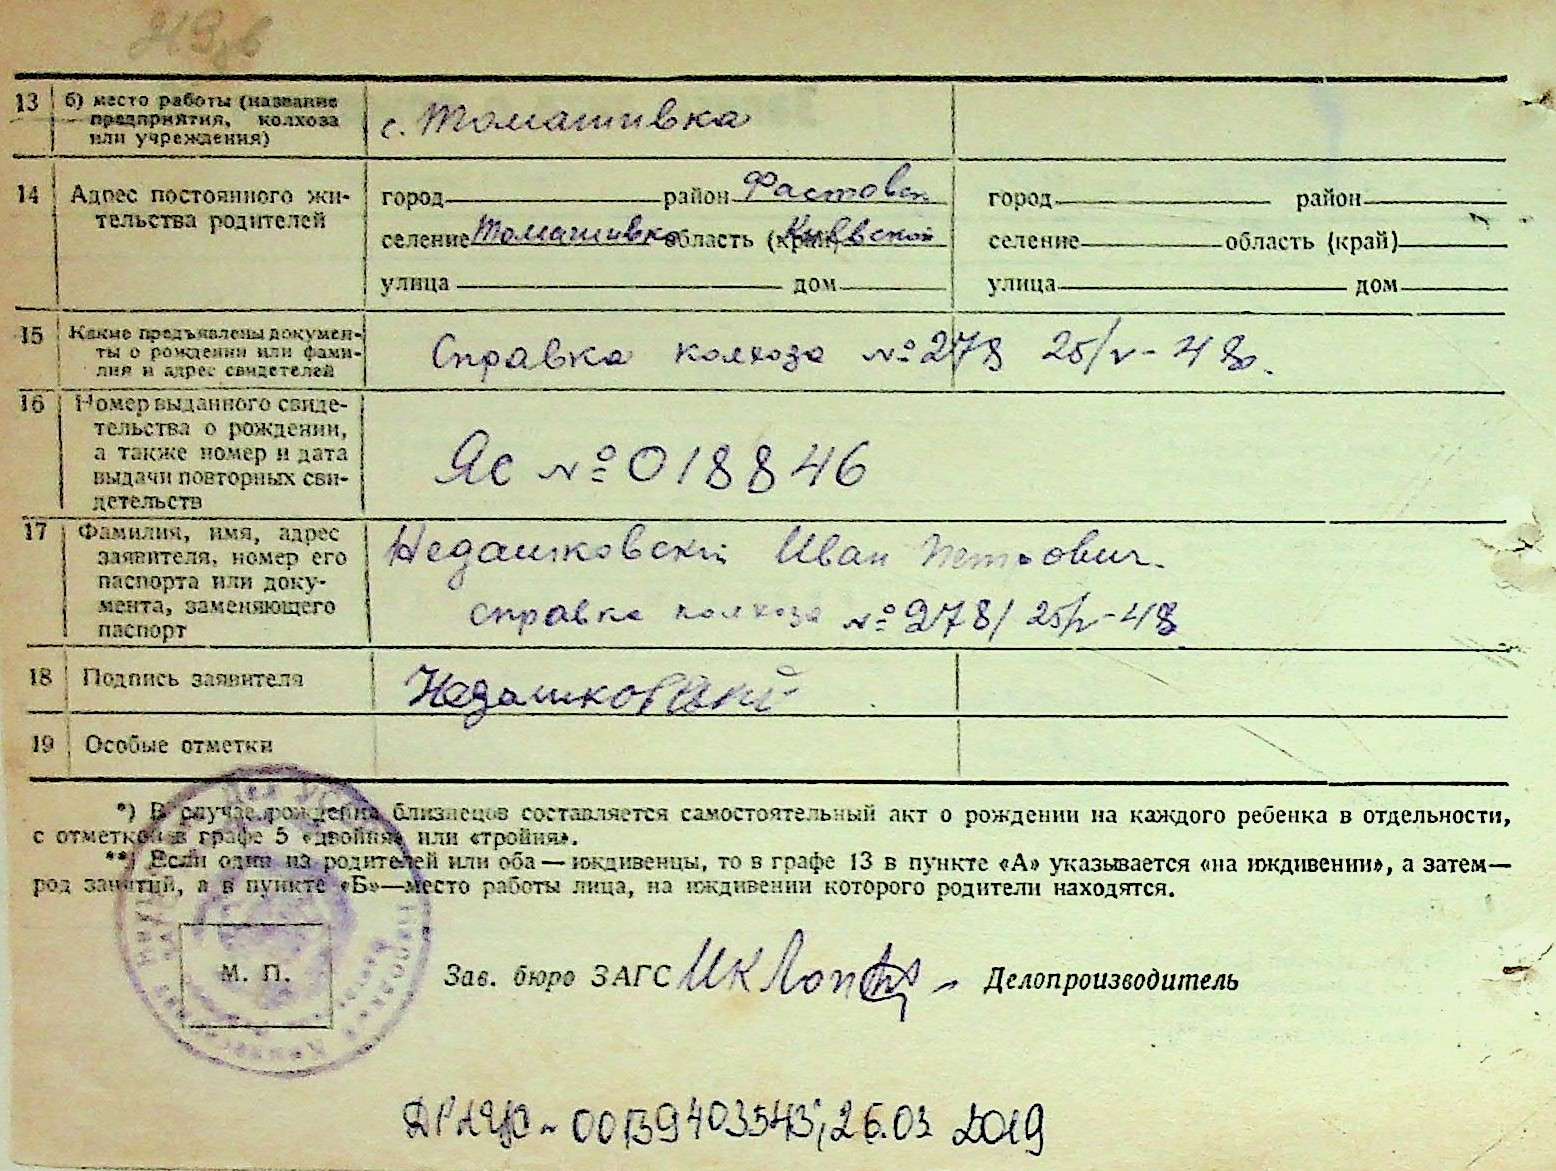 13 б) место работы (название
предприятия, колхоза
или учреждения)
с. Томашивка
14 Адрес постоянного жи-
тельства родителей
город район Фастовск город район
селение Томашивка область (край) Киевской селение область (край)
улица дом улица дом
15 Какие предъявлены докумен-
ты о рождении или фами-
лия и адрес свидетелей
Справка колхоза №278 25/V-48.
16 Номер выданного свиде-
тельства о рождении,
а также номер и дата
выдачи повторных сви-
детельств
Яс №018846
17 Фамилия, имя, адрес
заявителя, номер его
паспорта или доку-
мента, заменяющего
паспорт
Недашковский Иван Петрович.
справка колхоза №278/ 25/V-48
18 Подпись заявителя Недашковский
19 Особые отметки
*) В случае рождения близнецов составляется самостоятельный акт о рождении на каждого ребенка в отдельности,
с отметкой в графе 5 «двойня» или «тройня».
**) Если один из родителей или оба — иждивенцы, то в графе 13 в пункте «А» указывается «на иждивении», а затем—
род занятий, а в пункте «Б»—место работы лица, на иждивении которого родители находятся.
М. П.
Зав. бюро ЗАГС Делопроизводитель
ДРАЦС - 00139403543; 26.03 2019